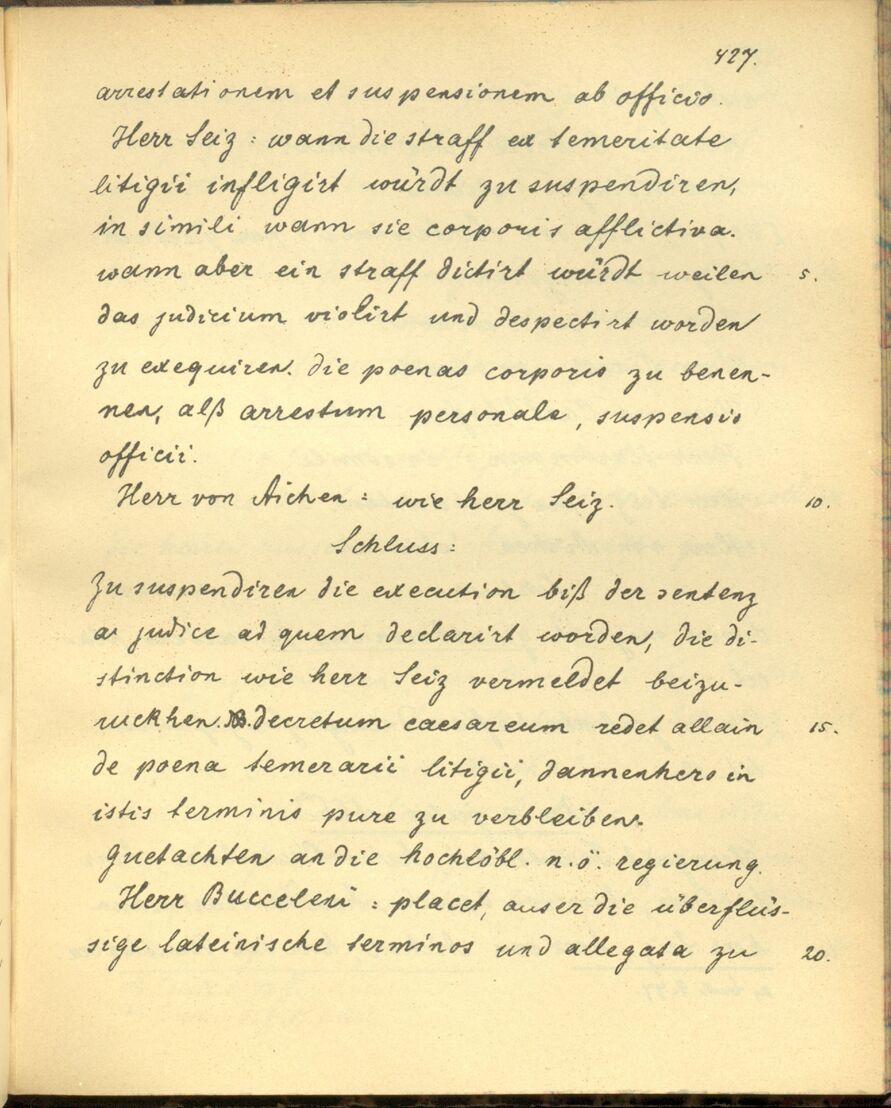 427.
arrestationem et suspensionem ab officio.
Herr Seiz: wann die straff ex temeritate
litigii infligirt würdt zu suspendiren,
in simili wann sie corporis afflictiva.
wann aber ein straff dictirt würdt weilen 5.
das judicium violirt und despectirt worden
zu exequiren. die poenas corporis zu benen-
nen, alß arrestum personale, suspensio
officii.
Herr von Aichen: wie herr Seiz. 10.
Schluss:
Zu suspendiren die execution biß der sentenz
a judice ad quem declarirt worden, die di-
stinction wie herr Seiz vermeldet beizu-
ruckhen. NB. decretum caesareum redet allain 15.
de poena temerarii litigii, dannenhero in
istis terminis pure zu verbleiben.
Guetachten an die hochlöbl. n. ö. regierung.
Herr Bucceleni: placet, auser die überflüs-
sige lateinische terminos und allegata zu 20.